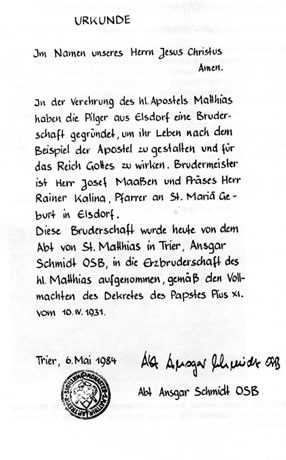 URKUNDE
Im Namen unseres Herrn Jesus Christus
Amen.
In der Verehrung des hl. Apostels Matthias
haben die Pilger aus Elsdorf eine Bruder-
schaft gegründet, um ihr Leben nach dem
Beispiel der Apostel zu gestalten und für
das Reich Gottes zu wirken. Brudermeister
ist Herr Josef Maaßen und Präses Herr
Rainer Kalina, Pfarrer an St. Mariä Ge-
burt in Elsdorf.
Diese Bruderschaft wurde heute von dem
Abt von St. Matthias in Trier, Ansgar
Schmidt OSB, in die Erzbruderschaft des
hl. Matthias aufgenommen, gemäß den Voll-
machten des Dekretes des Papstes Pius XI.
vom 10. IV. 1931.
Trier, 6. Mai 1984
Abt Ansgar Schmidt OSB
Abt Ansgar Schmidt OSB